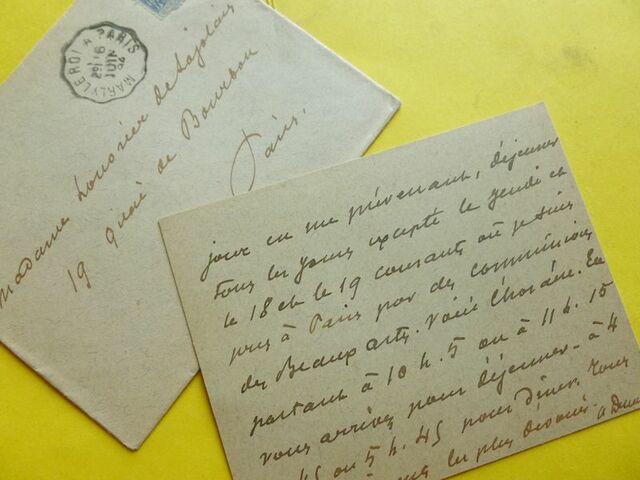 MARLY-LE-ROI A PARIS
16
JUIN
Madame
19 Quai de Bourbon
Paris.
jour en me prévenant, déjeuner
tous les jours excepté le jeudi et
le 18 et le 19 courants où je suis
pris à Paris par des commissions
des Beaux arts. Voici l'horaire. En
partant à 10 h. 5 ou à 11 h. 15
vous arrivez pour déjeuner - à 4
45 ou 5 h. 45 pour dîner. Tous
les plus dévoués.